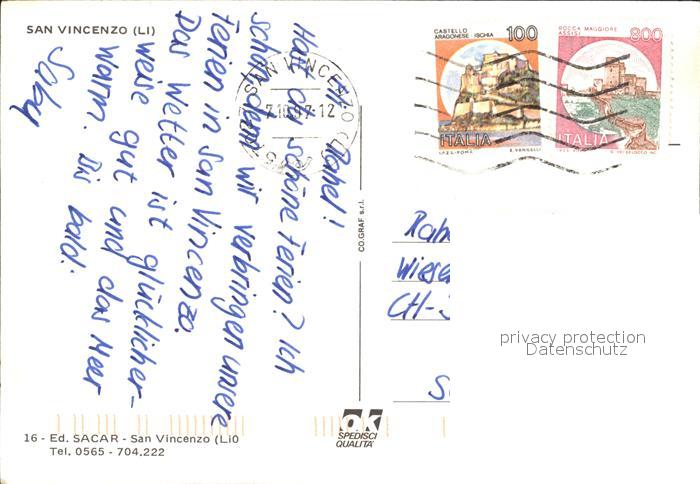 SAN VINCENZO (LI)
Rahel!
Hast du schöne Ferien? Ich
schon, denn wir verbringen unsere
Ferien in San Vincenzo.
Das Wetter ist glücklicher-
weise gut und das Meer
warm. Bis bald:
Saby
SAN VINCENZO
7.10.97-12
CASTELLO
ARAGONESE ISCHIA
100
ITALIA
I.P.Z.S.-ROMA
E. VANGELLI
ROCCA MAGGIORE
ASSISI
800
ITALIA
CO.GRAF s.r.l.
Wiese
CH-
privacy protection
Datenschutz
16 - Ed. SACAR - San Vincenzo (LI)
Tel. 0565 - 704.222
ok
SPEDISCI
QUALITA'